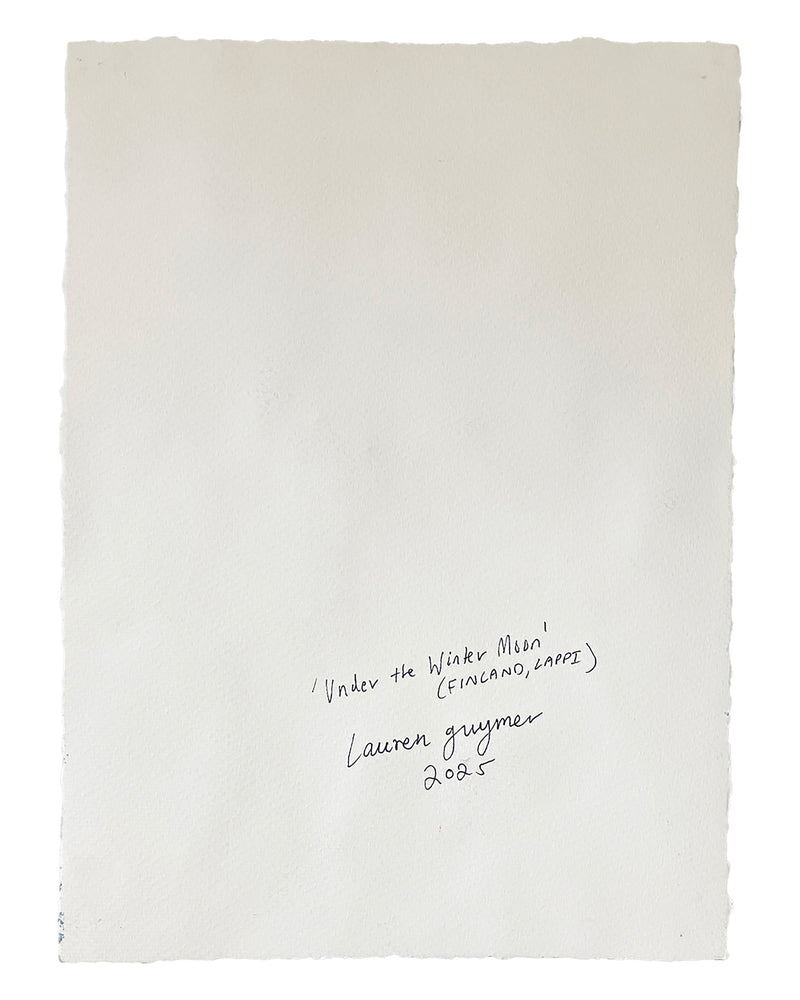 'Under the Winter Moon'
(FINLAND, LAPPI)
Lauren guymer
2025